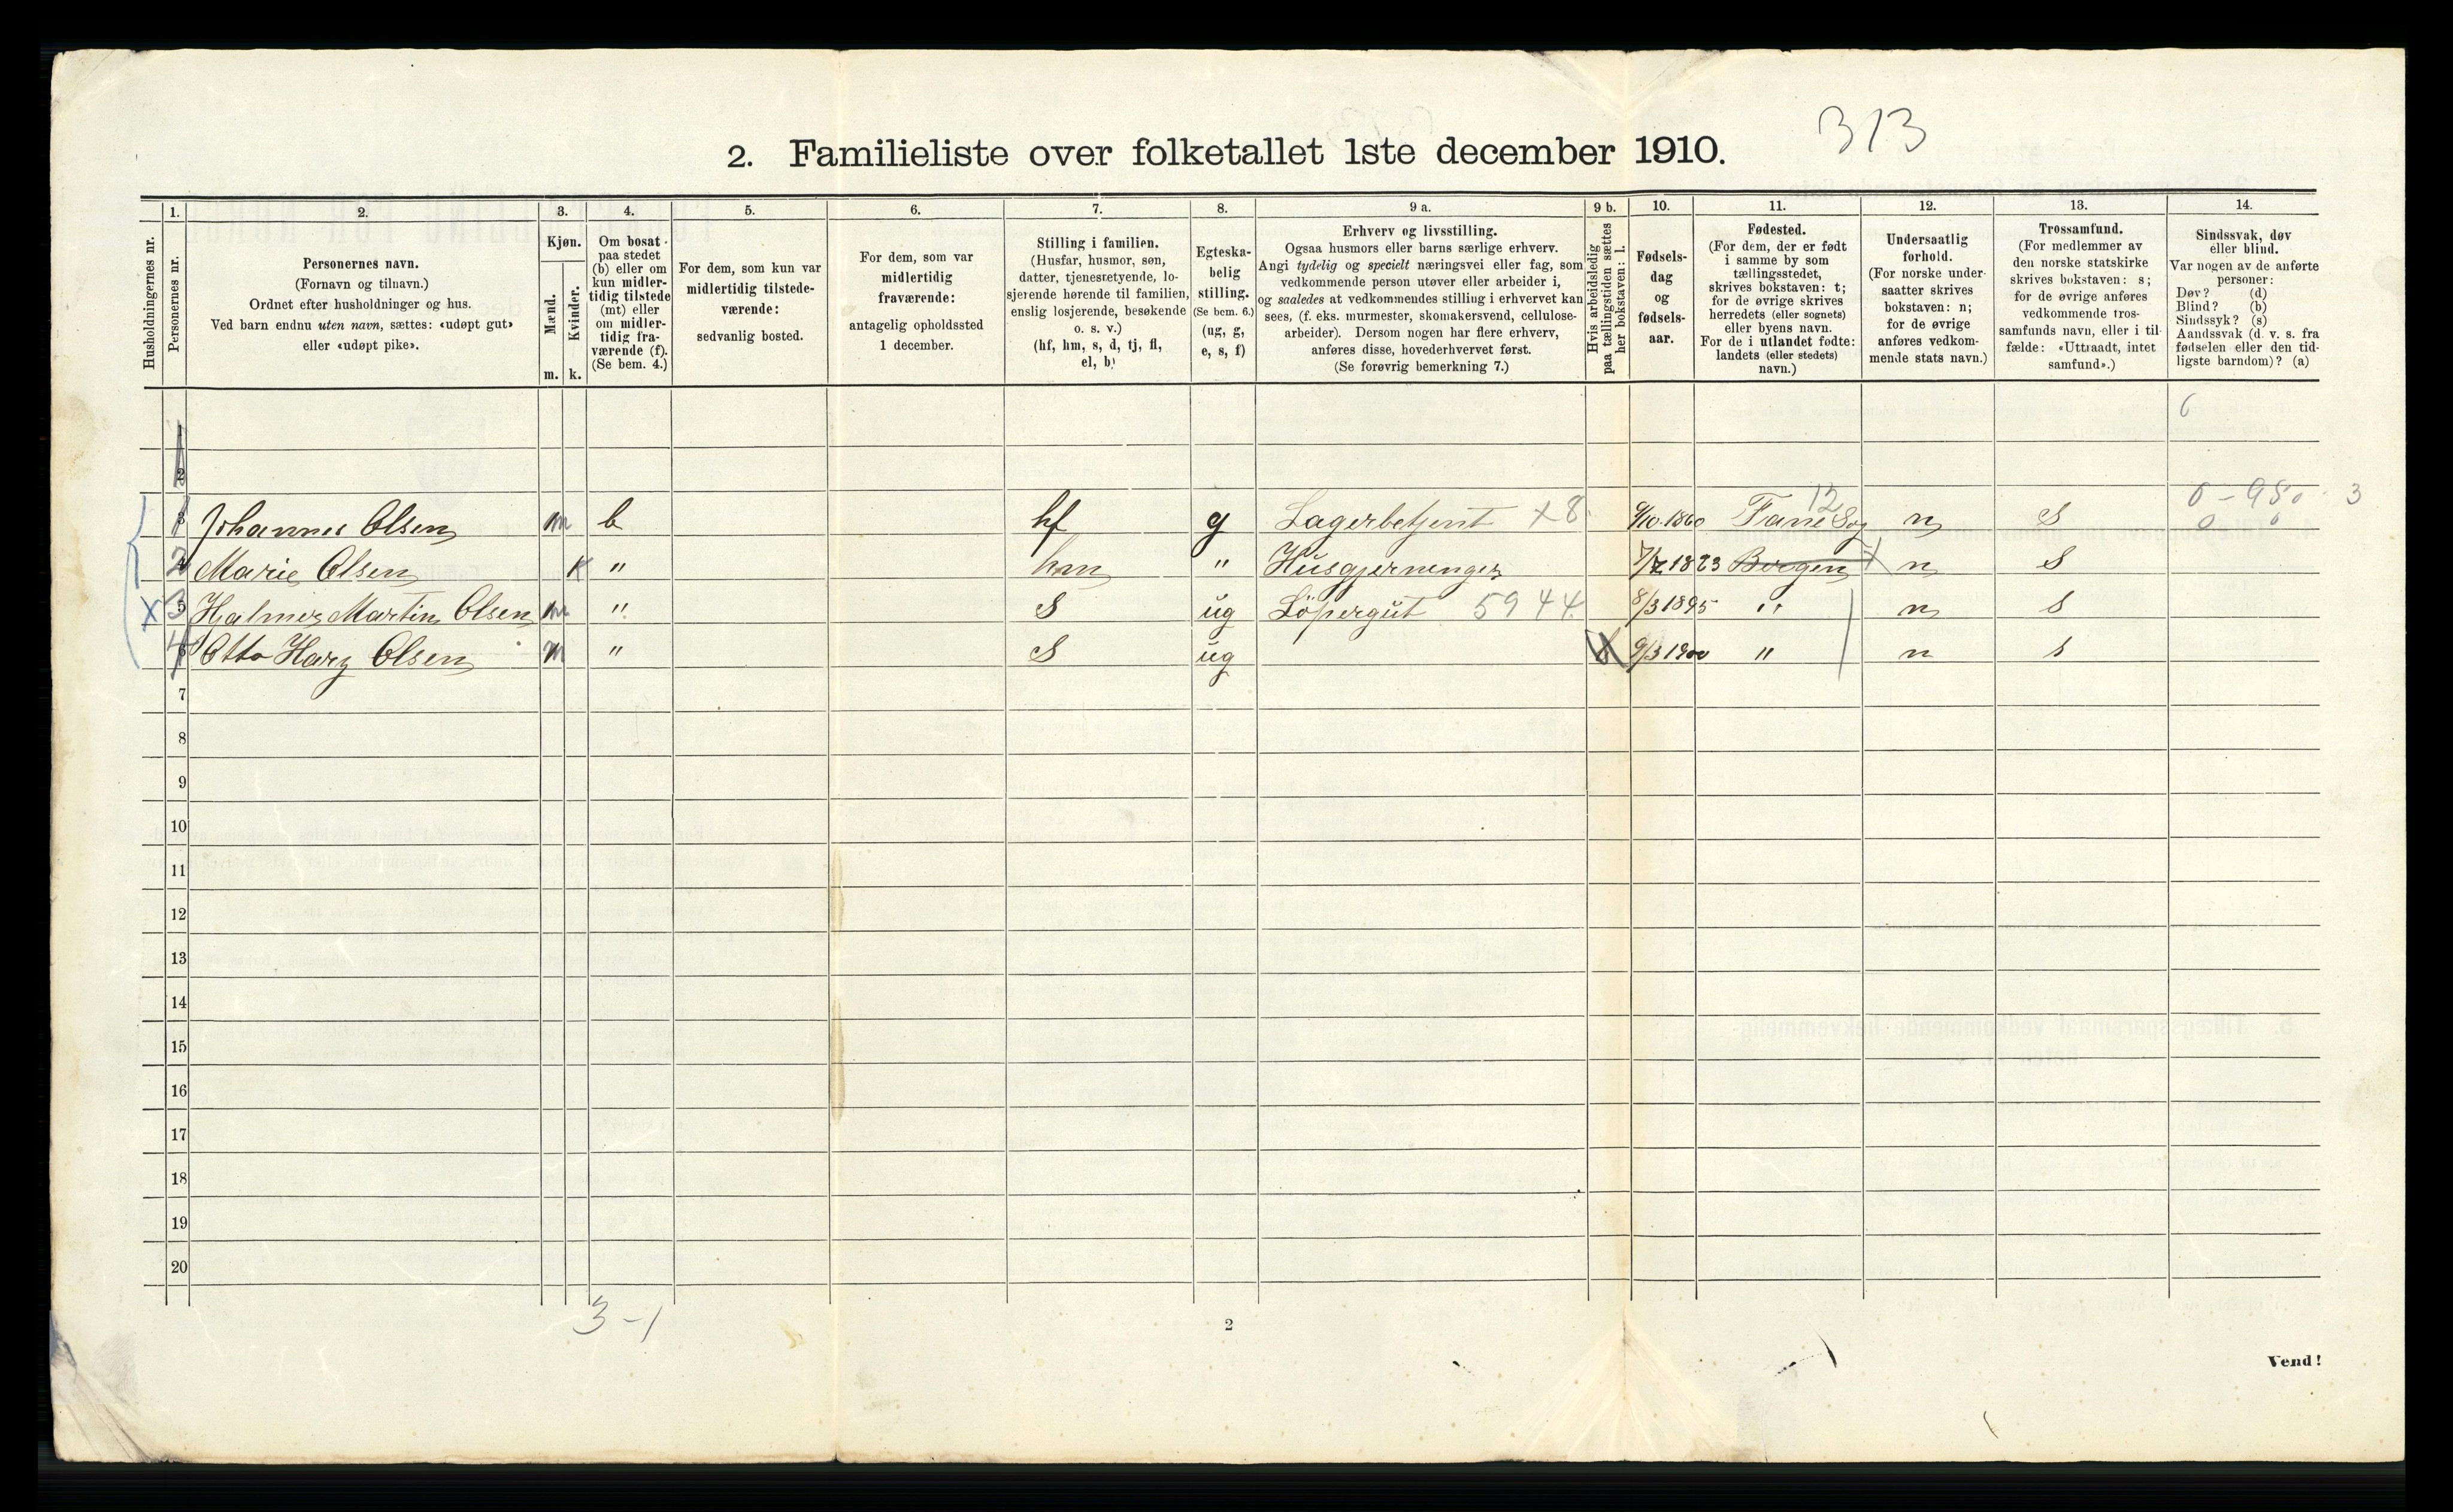 313
2. Familieliste over folketallet 1ste december 1910.
Husholdningernes nr.
1. Personernes nr.
2. Personernes navn.
(Fornavn og tilnavn.)
Ordnet efter husholdninger og hus.
Ved barn endnu uten navn, sættes: «udøpt gut»
eller «udøpt pike».
3. Kjøn.
Mænd. m.
Kvinder. k.
4. Om bosat
paa stedet
(b) eller om
kun midler-
tidig tilstede
(mt) eller
om midler-
tidig fra-
værende (f).
(Se bem. 4.)
5. For dem, som kun var
midlertidig tilstede-
værende:
sedvanlig bosted.
6. For dem, som var
midlertidig
fraværende:
antagelig opholdssted
1 december.
7. Stilling i familien.
(Husfar, husmor, søn,
datter, tjenestetyende, lo-
sjerende hørende til familien,
enslig losjerende, besøkende
o. s. v.)
(hf, hm, s, d, tj, fl,
el, b)
8. Egteska-
belig
stilling.
(Se bem. 6.)
(ug, g,
e, s, f)
9 a. Erhverv og livsstilling.
Ogsaa husmors eller barns særlige erhverv.
Angi tydelig og specielt næringsvei eller fag, som
vedkommende person utøver eller arbeider i,
og saaledes at vedkommendes stilling i erhvervet kan
sees, (f. eks. murmester, skomakersvend, cellulose-
arbeider). Dersom nogen har flere erhverv,
anføres disse, hovederhvervet først.
(Se forøvrig bemerkning 7.)
9 b. Hvis arbeidsledig
paa tællingstiden sættes
her bokstaven: l.
10. Fødsels-
dag
og
fødsels-
aar.
11. Fødested.
(For dem, der er født
i samme by som
tællingsstedet,
skrives bokstaven: t;
for de øvrige skrives
herredets (eller sognets)
eller byens navn.
For de i utlandet fødte:
landets (eller stedets)
navn.)
12. Undersaatlig
forhold.
(For norske under-
saatter skrives
bokstaven: n;
for de øvrige
anføres vedkom-
mende stats navn.)
13. Trossamfund.
(For medlemmer av
den norske statskirke
skrives bokstaven: s;
for de øvrige anføres
vedkommende tros-
samfunds navn, eller i til-
fælde: «Uttraadt, intet
samfund».)
14. Sindssvak, døv
eller blind.
Var nogen av de anførte
personer:
Døv? (d)
Blind? (b)
Sindssyk? (s)
Aandssvak (d. v. s. fra
fødselen eller den tid-
ligste barndom)? (a)
6
1
2
12
1 Johannes Olsen m b hf g Lagerbetjent x8 1860 Fane Sog n S
2 Marie Olsen k " hm " Husgjerninger Bergen n S
x 3 Hjalmer Martin Olsen m " S ug Löpergut 5944 8/3 1895 " n S
4 Otto Hary Olsen m " S ug 9/3 1900 " n s
7
8
9
10
11
12
13
14
15
16
17
18
19
20
3-1
2
Vend!